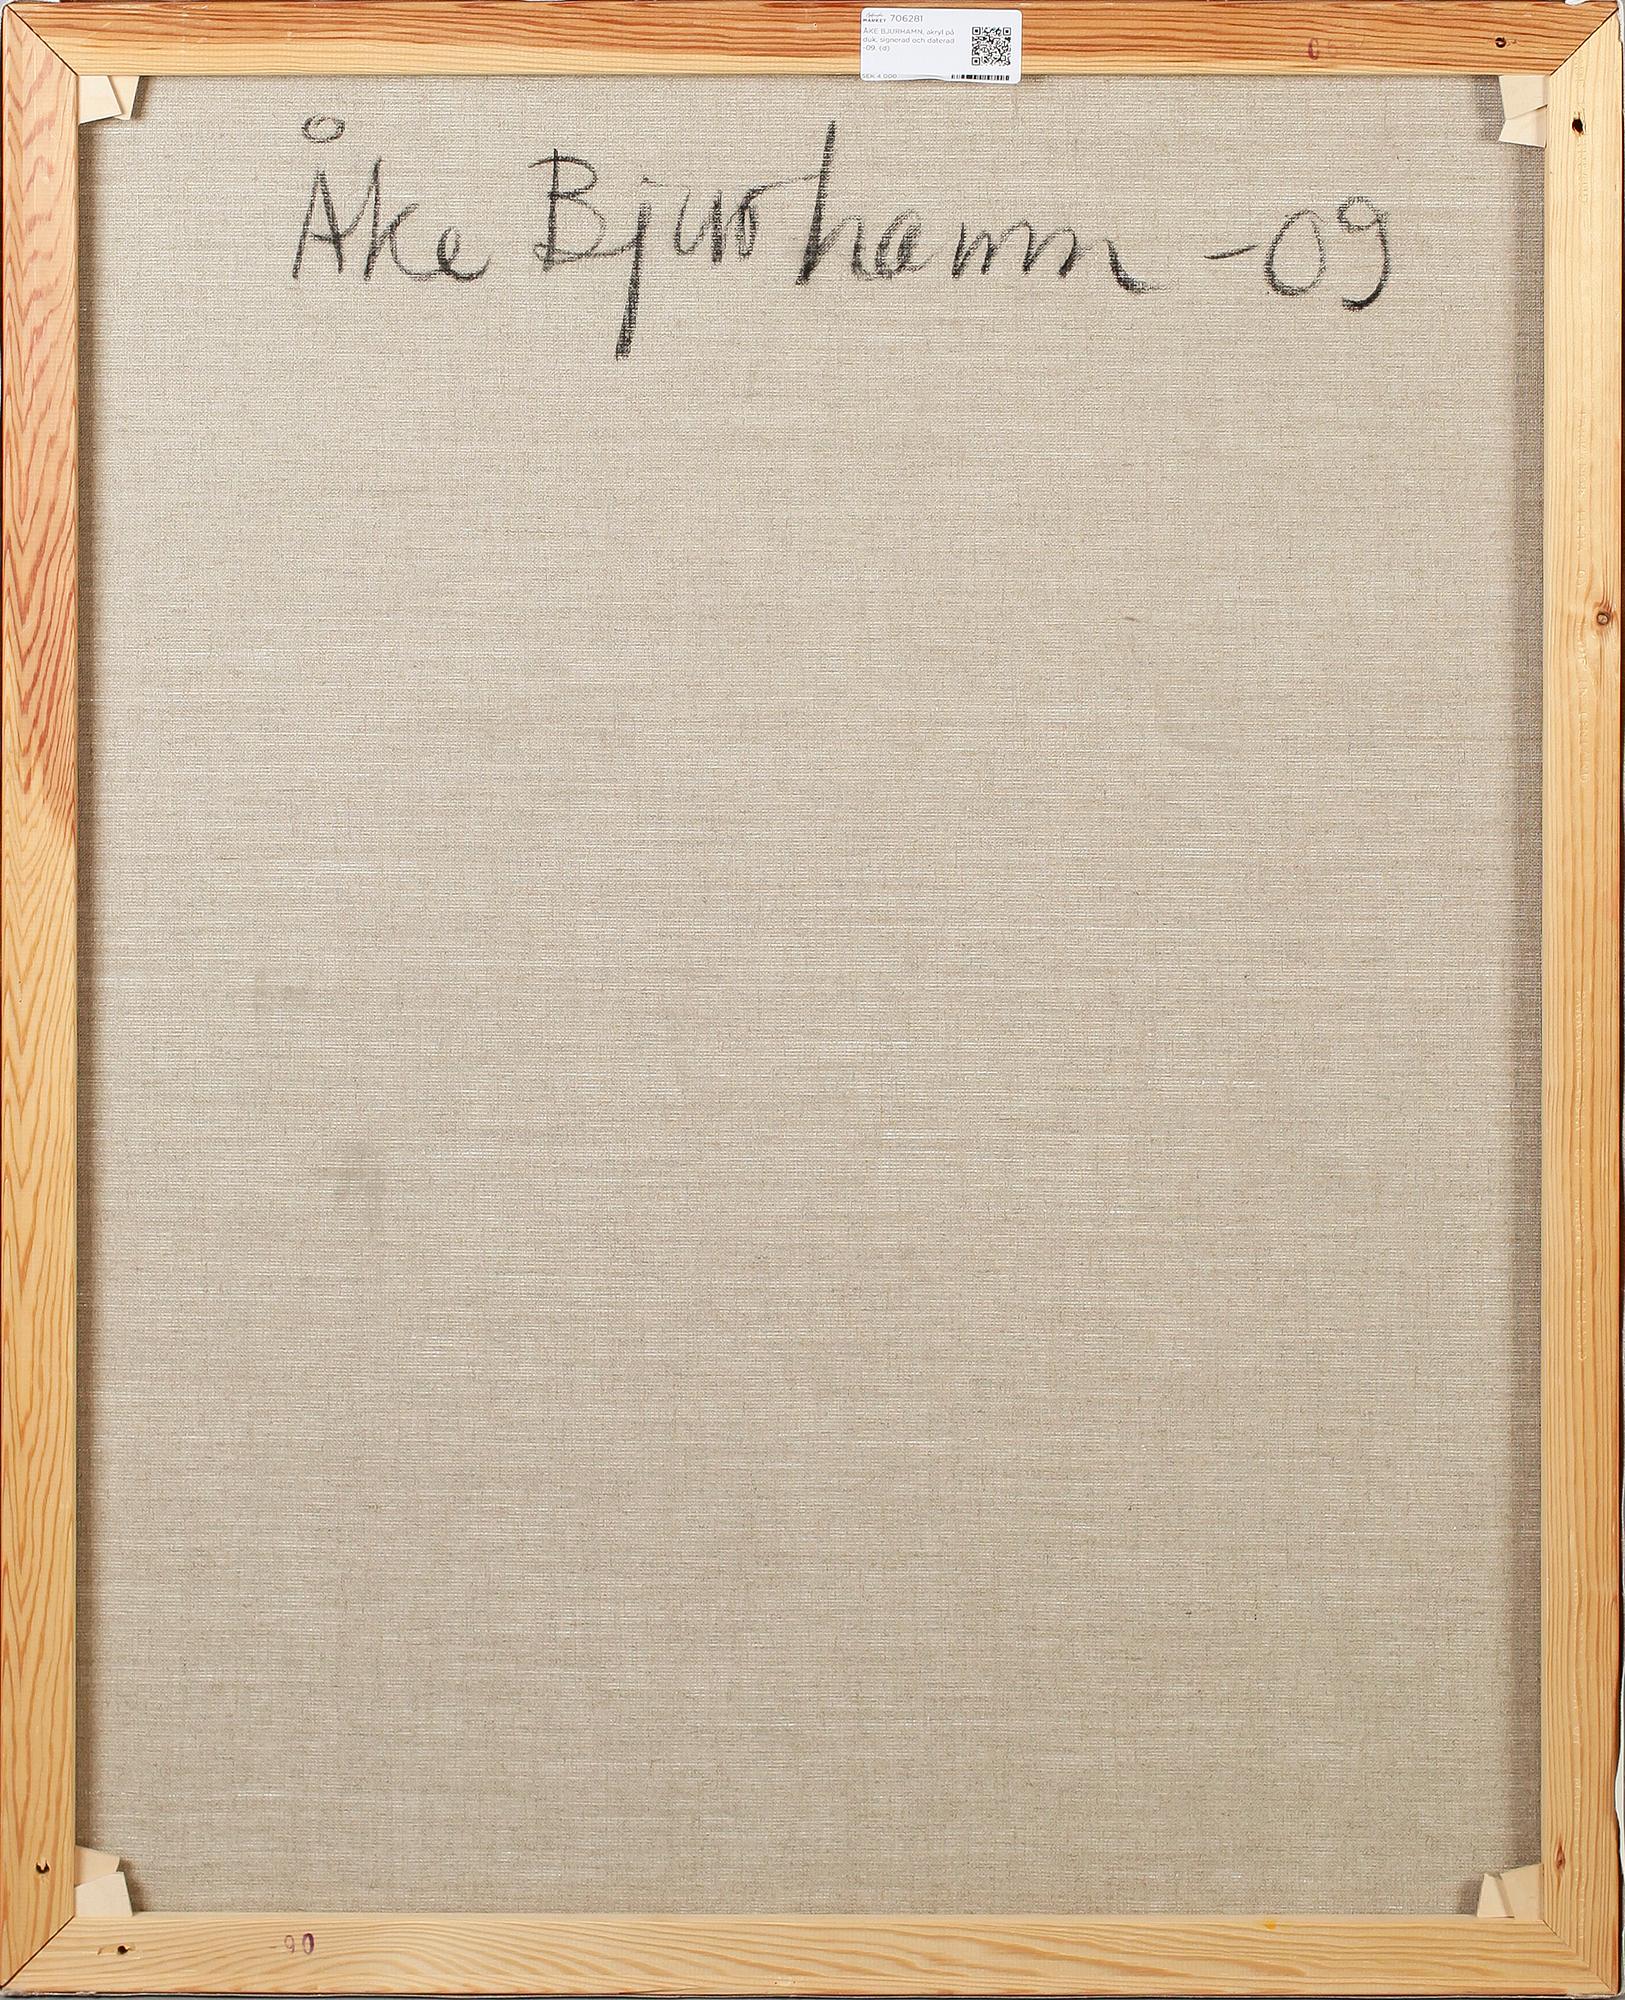 MARKET 706281
ÅKE BJURHAMN, akryl på
duk, signerad och daterad
-09. (d)
SEK 4 000
Åke Bjurhamn -09
90